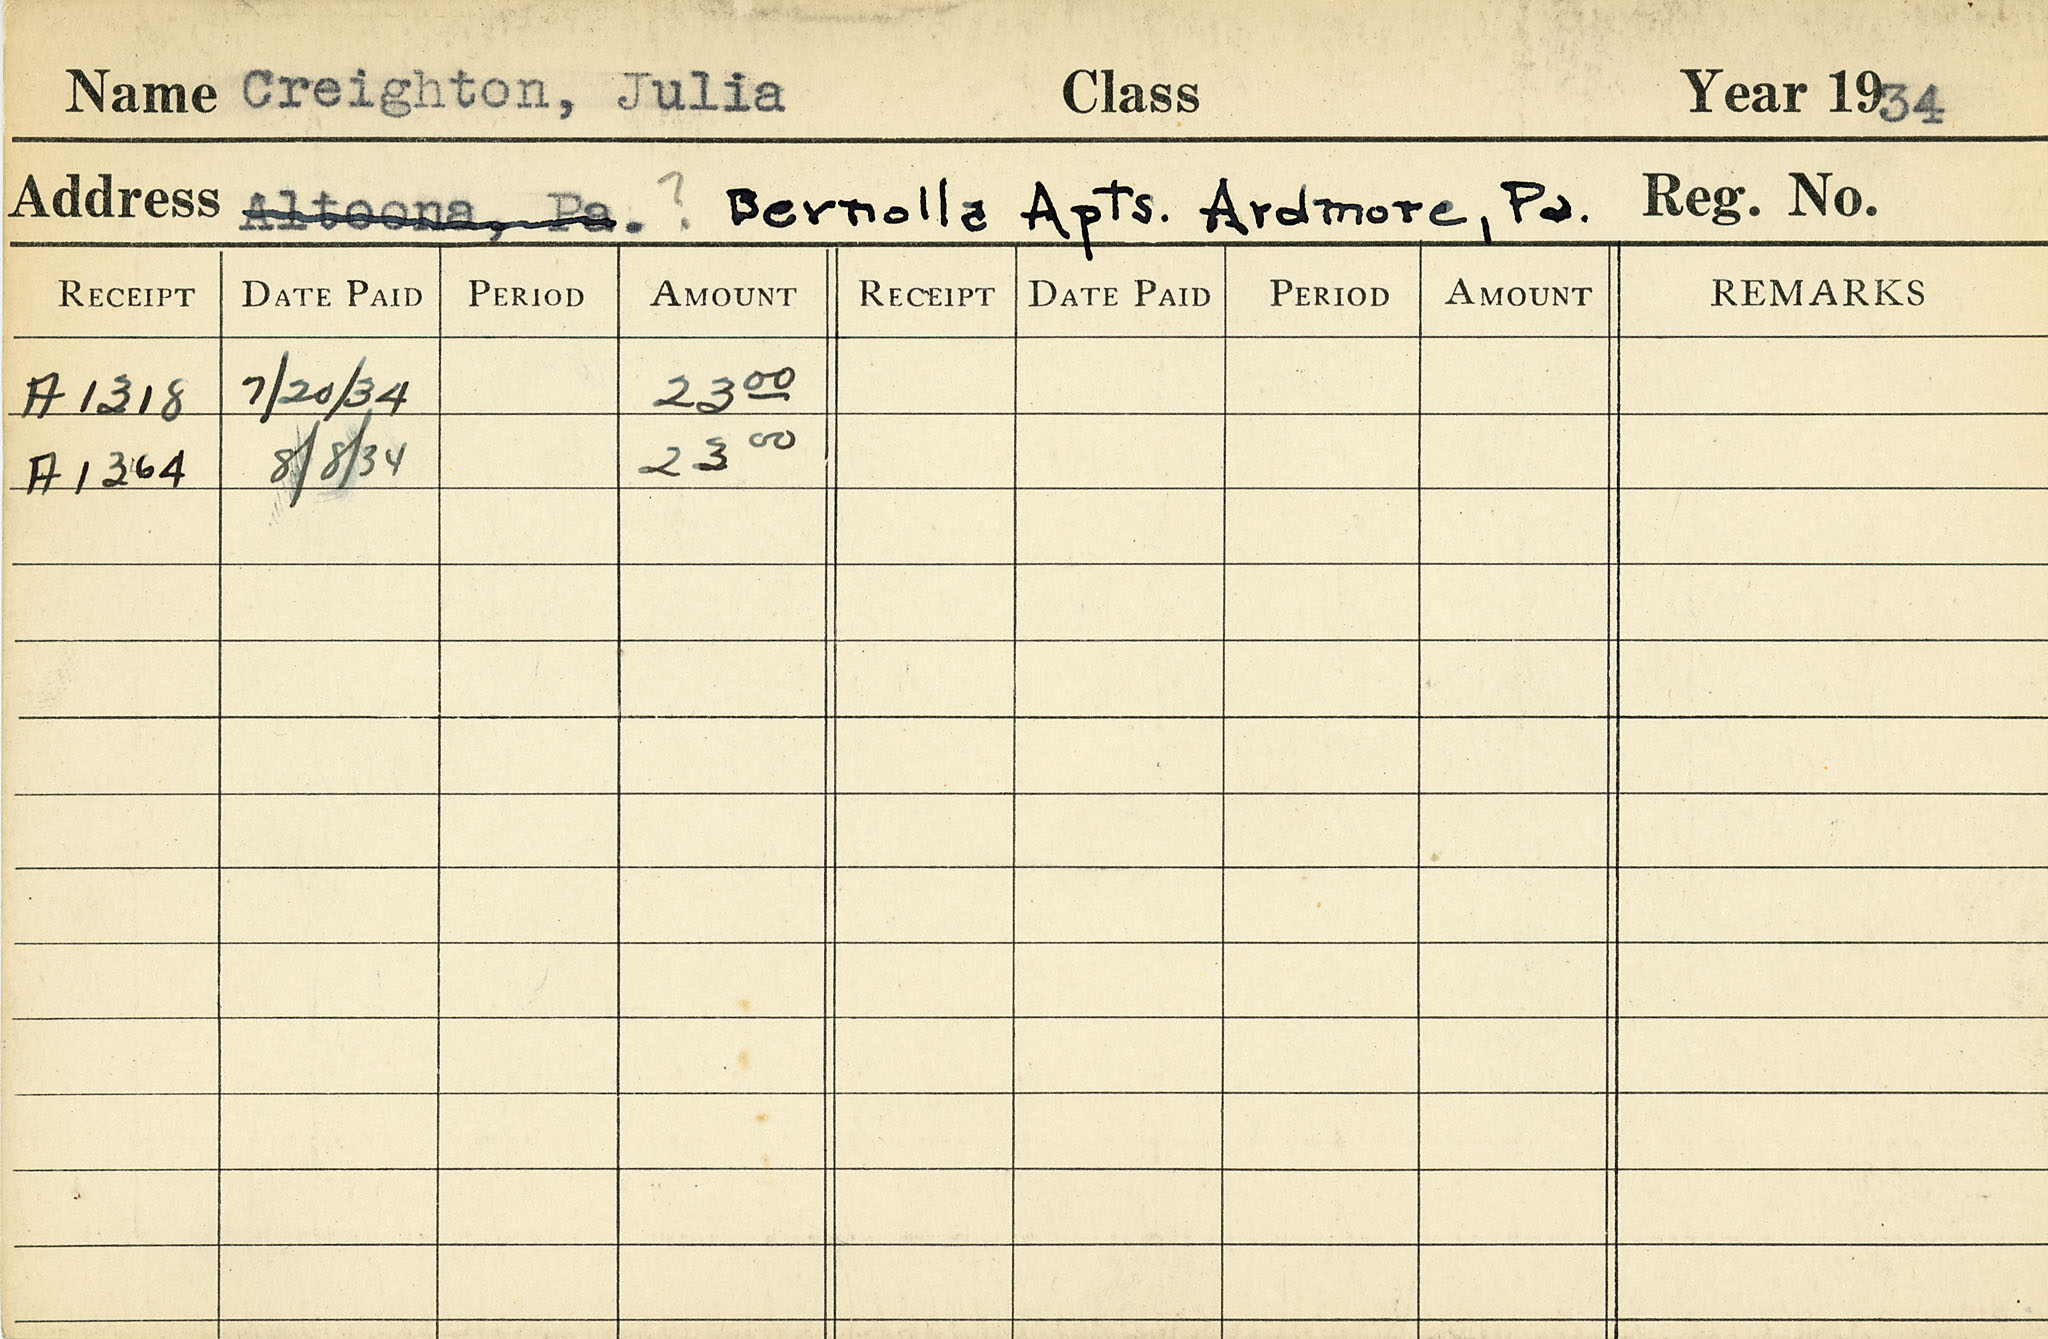 Name Creighton, Julia Class Year 1934
Address Altoona, Pa. ? Bernolla Apts. Ardmore, Pa. Reg. No.
RECEIPT DATE PAID PERIOD AMOUNT RECEIPT DATE PAID PERIOD AMOUNT REMARKS
A1318 7/20/34 23 00
A1364 8/8/34 23 00